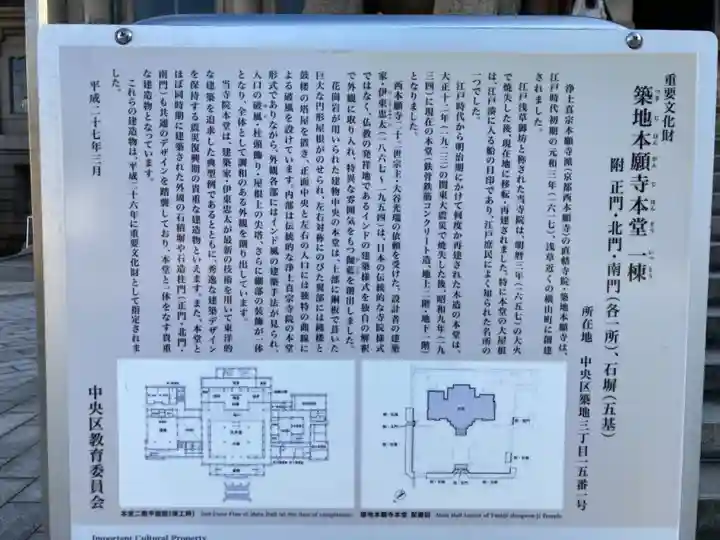 重要文化財
築地本願寺本堂 一棟
つき じ ほん がん じ ほん どう いっ とう
附 正門・北門・南門(各一所)、石塀(五基)
所在地 中央区築地三丁目一五番一号
浄土真宗本願寺派(京都西本願寺)の直轄寺院・築地本願寺は、
江戸時代初期の元和三年(一六一七)、浅草近くの横山町に創建
されました。
江戸浅草御坊と称された当寺院は、明暦三年(一六五七)の大火
で焼失した後、現在地に移転・再建されました。特に本堂の大屋根
は、江戸湊に入る船の目印であり、江戸庶民によく知られた名所の
一つでした。
江戸時代から明治期にかけて何度か再建された木造の本堂は、
大正十二年(一九二三)の関東大震災で焼失した後、昭和九年(一九
三四)に現在の本堂(鉄骨鉄筋コンクリート造、地上二階・地下一階)
となりました。
西本願寺二十二世宗主・大谷光瑞の依頼を受けた、設計者の建築
家・伊東忠太(一八六七~一九五四)は、日本の伝統的な寺院様式
ではなく、仏教の発祥地であるインドの建築様式を独自の解釈
で外観に取り入れ、特異な雰囲気をもつ伽藍を創出しました。
花崗岩が用いられた建物中央の本堂は、上部に銅板で葺いた
巨大な円形屋根がのせられ、左右対称にのびた翼部には鐘楼と
鼓楼の塔屋を置き、正面中央と左右の入口には独特の曲線に
よる破風を設けています。内部は伝統的な浄土真宗寺院の本堂
形式でありながら、外観各部にはインド風の建築手法が見られ、
入口の破風・柱頭飾り・屋根上の尖塔、さらに細部の装飾が一体
となり、全体として調和のある外観を創り出しています。
当寺院本堂は、建築家・伊東忠太が最新の技術を用いて東洋的
な建築を追求した典型例であるとともに、秀逸な建築デザイン
を保持する震災復興期の貴重な建造物といえます。また、本堂と
ほぼ同時期に建築された外周の石積塀や石造柱門(正門・北門・
南門)も共通のデザインを踏襲しており、本堂と一体をなす貴重
な建造物となっています。
これらの建造物は、平成二十六年に重要文化財として指定されま
した。
平成二十七年三月
中央区教育委員会
本堂二階平面図(竣工時)
築地本願寺本堂 配置図
Important Cultural Property